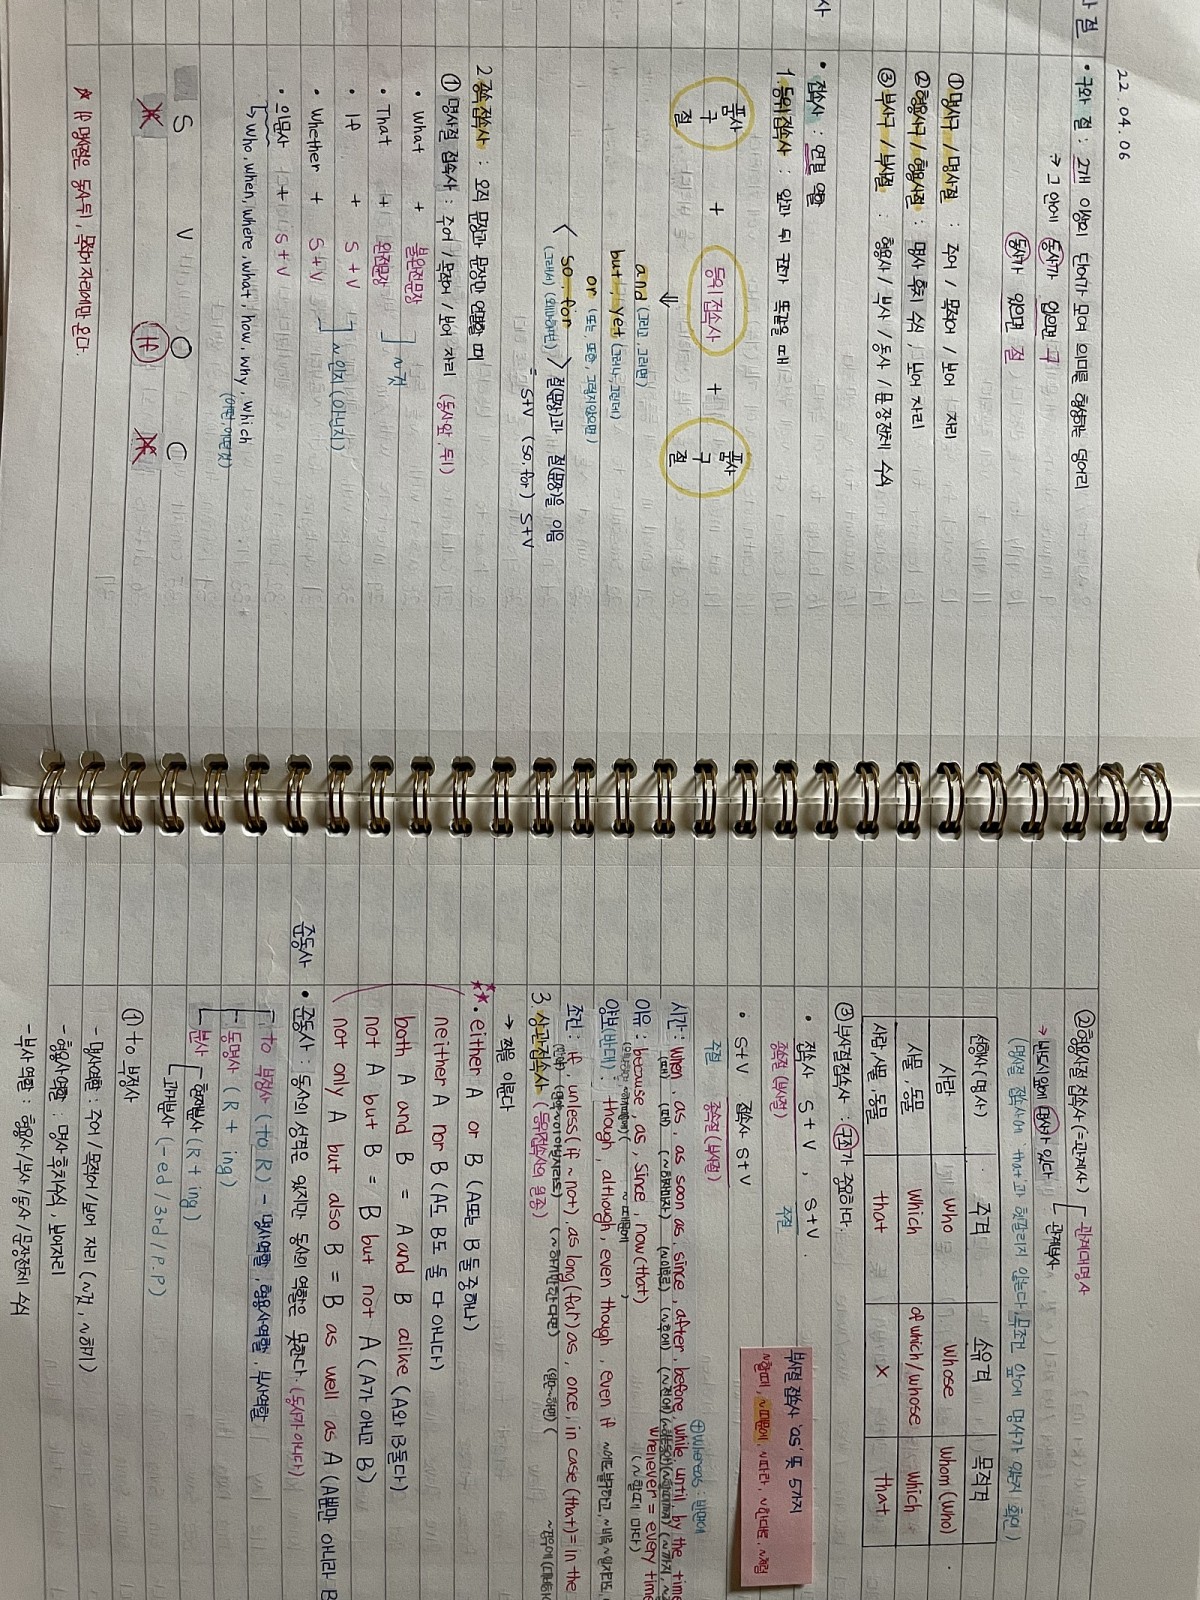 22.04.06
사 절
• 구와 절 : 2개 이상의 단어가 모여 의미를 형성하는 덩어리
→ 그 안에 동사가 없으면 구
동사가 있으면 절
① 명사구 / 명사절 : 주어 / 목적어 / 보어 자리
② 형용사구 / 형용사절 : 명사 후치 수식, 보어 자리
③ 부사구 / 부사절 : 형용사 / 부사 / 동사 / 문장전체 수식
사
• 접속사 : 연결 역할
1. 등위접속사 : 앞과 뒤 구조가 똑같을 때
품사 구 절 + 등위접속사 + 품사 구 절
⇓
and (그리고, 그러면)
but = yet (그러나, 그런데)
or (또는, 혹은, 그렇지않으면)
< so, for > 절(문장)과 절(문장)을 이음
(그래서) (왜냐하면)
S+V (so, for) S+V
2. 종속접속사 : 오직 문장과 문장만 연결할 때
① 명사절 접속사 : 주어 / 목적어 / 보어 자리 (동사앞, 뒤)
• What + 불완전문장
• That + 완전문장 ] ~것
• If + S+V
• Whether + S+V ] ~인지 (아닌지)
• 의문사 + S+V
↳ who, when, where, what, how, why, which
(어떤, 어떤것)
S V O C
If
☆ If 명사절은 동사뒤, 목적어 자리에만 온다.
② 형용사절 접속사 (=관계사) [ 관계대명사
→ 반드시 앞에 명사가 있다 관계부사
(명사절 접속사에 'that'과 헷갈리지 않는다, 무조건 앞에 명사가 있는지 확인)
선행사 (명사) 주격 소유격 목적격
사람 Who Whose Whom (Who)
사물, 동물 Which of which/whose which
사람, 사물, 동물 that × that
③ 부사절접속사 : 구조가 중요하다.
부사절 접속사 'as' 뜻 5가지
~할때, ~때문에, ~따라, ~한대로, ~처럼
• 접속사 S+V, S+V.
종속절 (부사절) 주절
• S+V 접속사 S+V
주절 종속절 (부사절)
⊕ Whereas : 반면에
시간 : when, as, as soon as, since, after, before, while, until, by the time
(때) (때) (~하자마자) (~이래로) (~후에) (~전에)
whenever = every time
(~할때 마다)
이유 : because, as, since, now (that)
~때문에
양보(반대) : though, although, even though, even if
조건 : if, unless (if ~ not), as long (far) as, once, in case (that) = in the
(~하기만 한다면) (일단~하면)
3. 상관접속사 (등위접속사의 일종)
→ 짝을 이룬다
☆☆ • either A or B (A또는 B 둘 중 하나)
neither A nor B (A도 B도 둘 다 아니다)
both A and B = A and B alike (A와 B둘다)
not A but B = B but not A (A가 아니고 B)
not only A but also B = B as well as A (A뿐만 아니라 B
준동사
• 준동사 : 동사의 성격은 있지만 동사의 역할은 못한다. (동사가 아니다)
to 부정사 (to R) - 명사역할, 형용사역할, 부사역할
동명사 (R + ing)
분사 [ 현재분사 (R + ing)
과거분사 (-ed / 3rd / P.P)
① to 부정사
- 명사역할 : 주어 / 목적어 / 보어 자리 (~것, ~하기)
- 형용사역할 : 명사 후치수식, 보어자리
- 부사역할 : 형용사 / 부사 / 동사 / 문장전체 수식